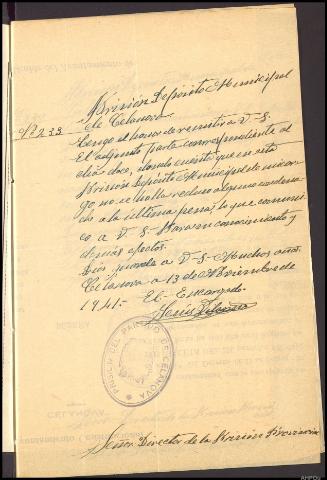 Prision Deposito Municipal
de Celanova
Nº 233
Tengo el honor de remitir a V. S.
El adjunto parte correspondiente al
dia doce, donde consta que en esta
Prision Deposito Municipal de mi car-
go no se halla recluso alguno condena-
do a la ultima pena, lo que comuni-
co a V. S. para su conocimiento y
demás efectos.
Dios guarde a V. S. Muchos años.
Celanova a 13 de Diciembre de
1941.- El Encargado.
PRISION DEL PARTIDO DE CELANOVA
CELANOVA
Señor Director de la Prision Provincial